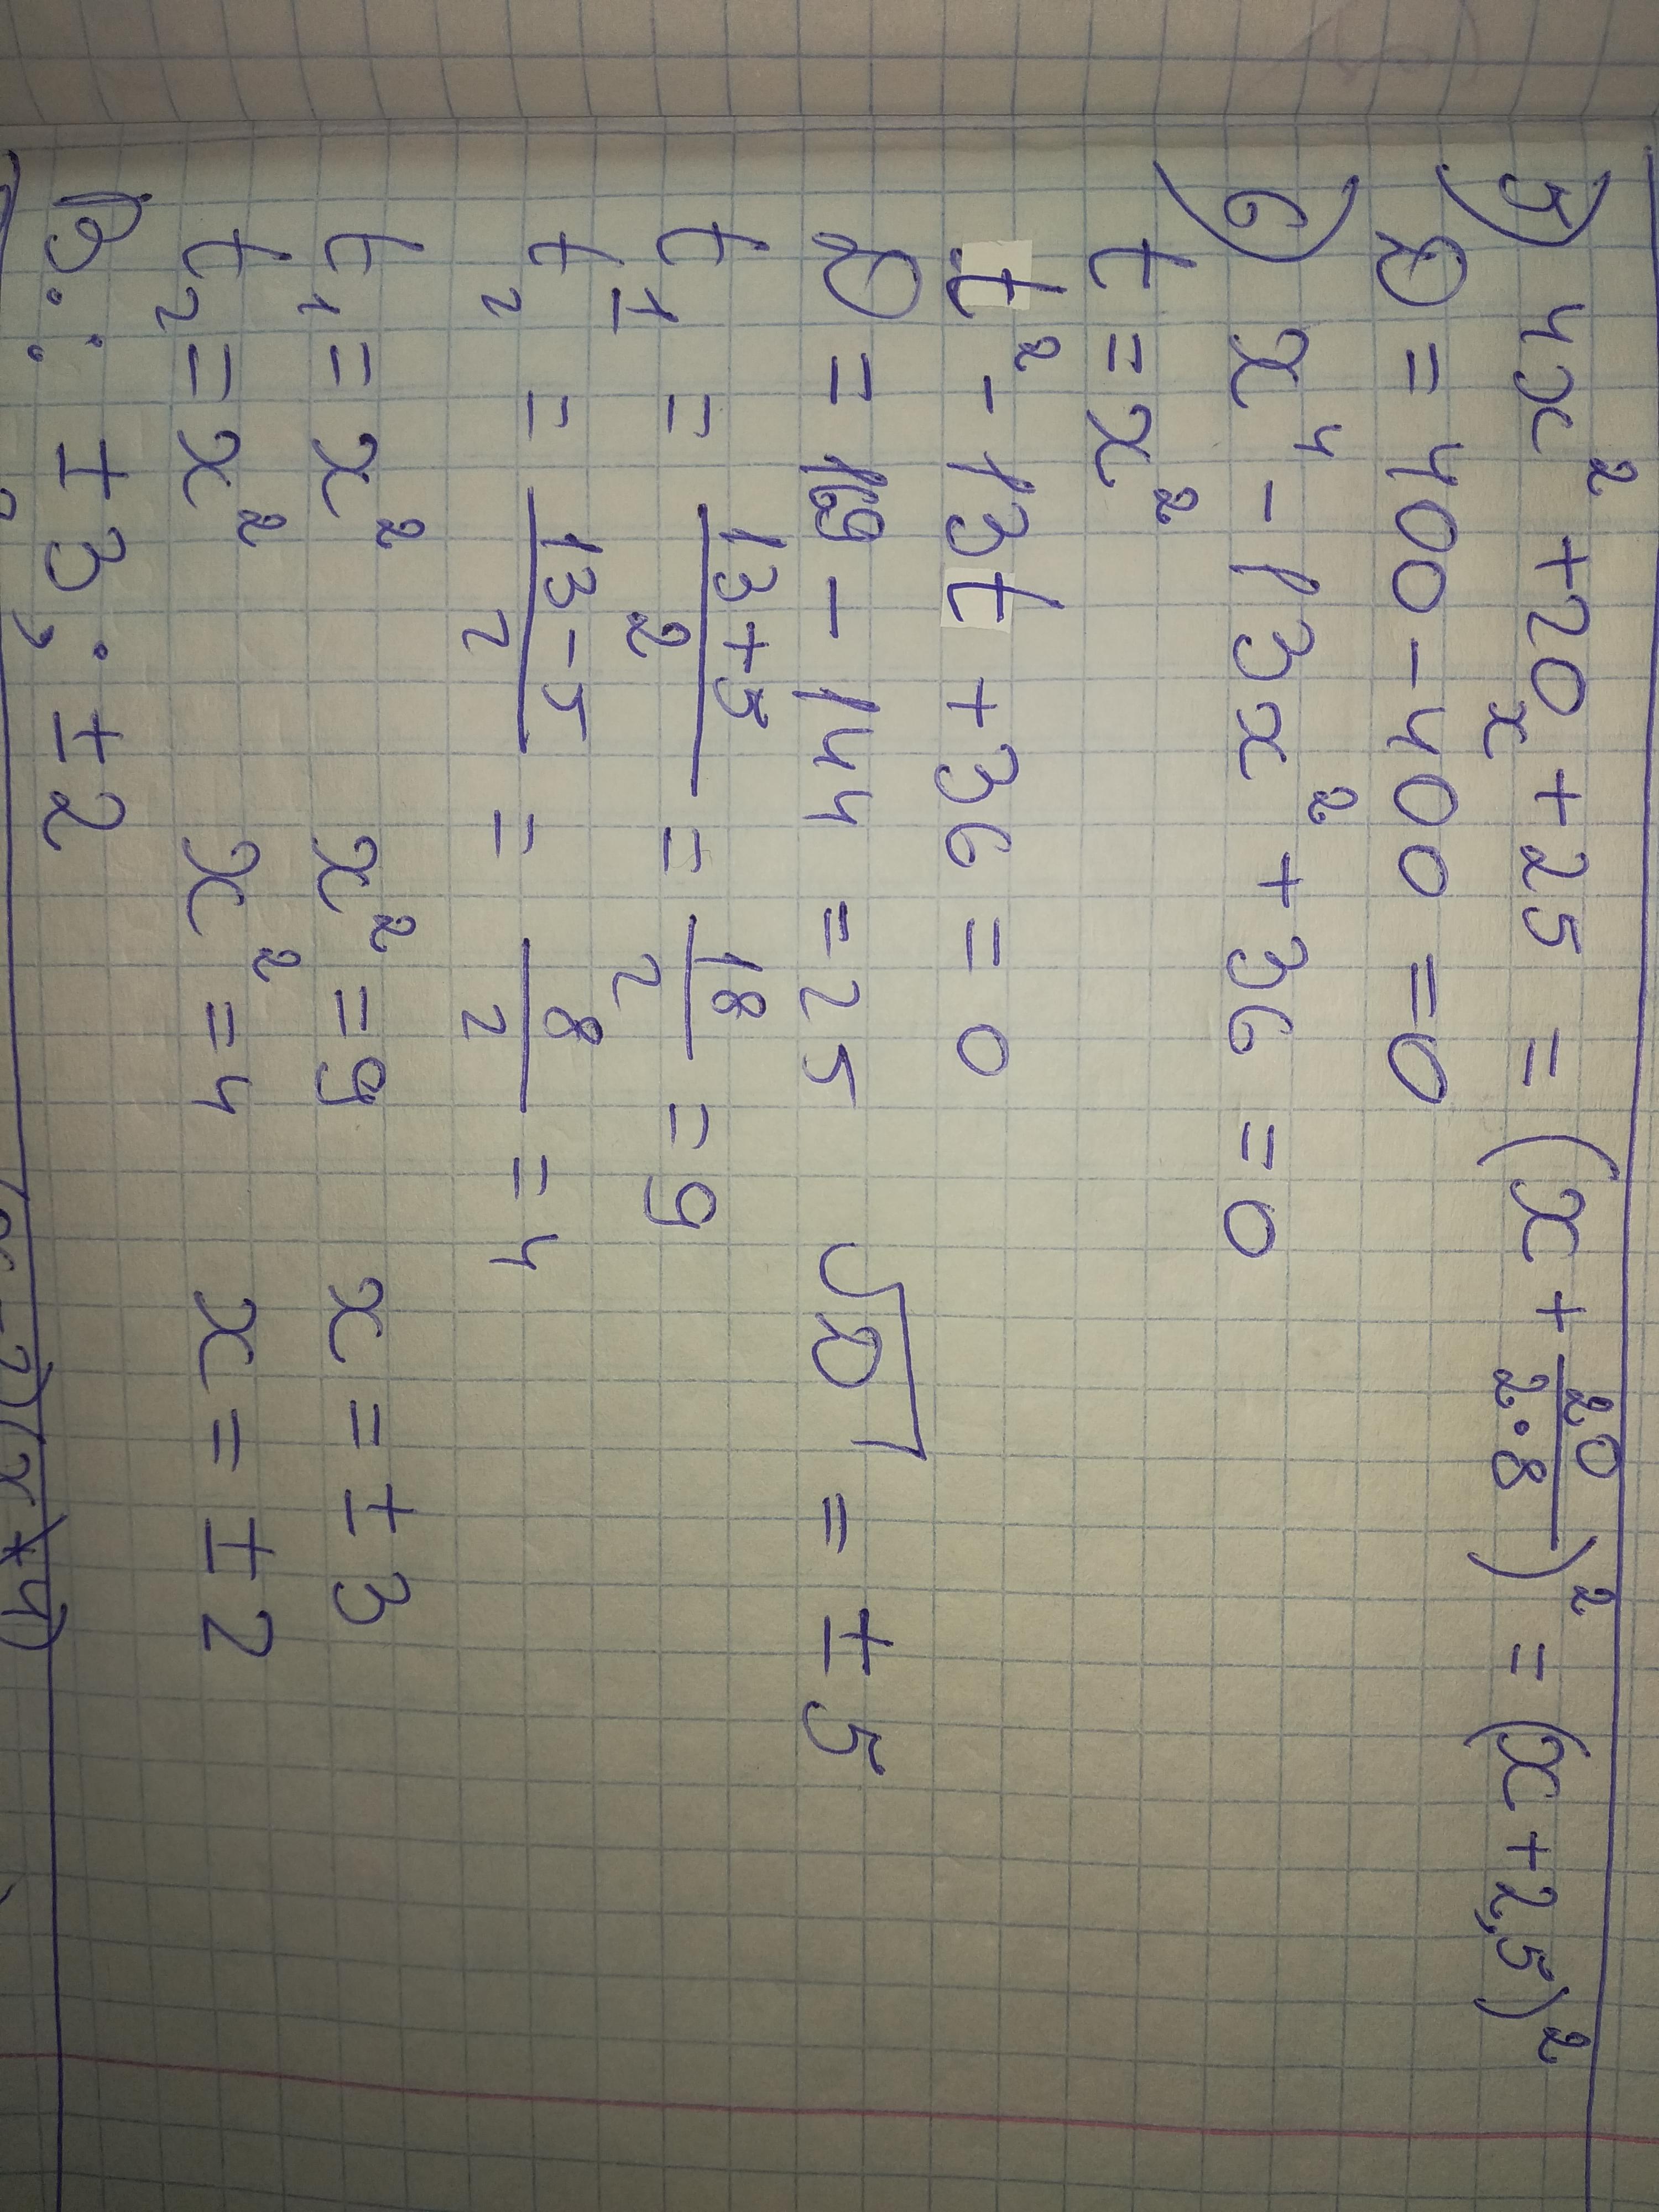 5) 4x² + 20x + 25 = (x + 20/(2·8))² = (x + 2,5)²
D = 400 - 400 = 0
6) x⁴ - 13x² + 36 = 0
t = x²
t² - 13t + 36 = 0
D = 169 - 144 = 25 √D = ± 5
t₁ = (13+5)/2 = 18/2 = 9
t₂ = (13-5)/2 = 8/2 = 4
t₁ = x² x² = 9 x = ± 3
t₂ = x² x² = 4 x = ± 2
В.: ± 3; ± 2